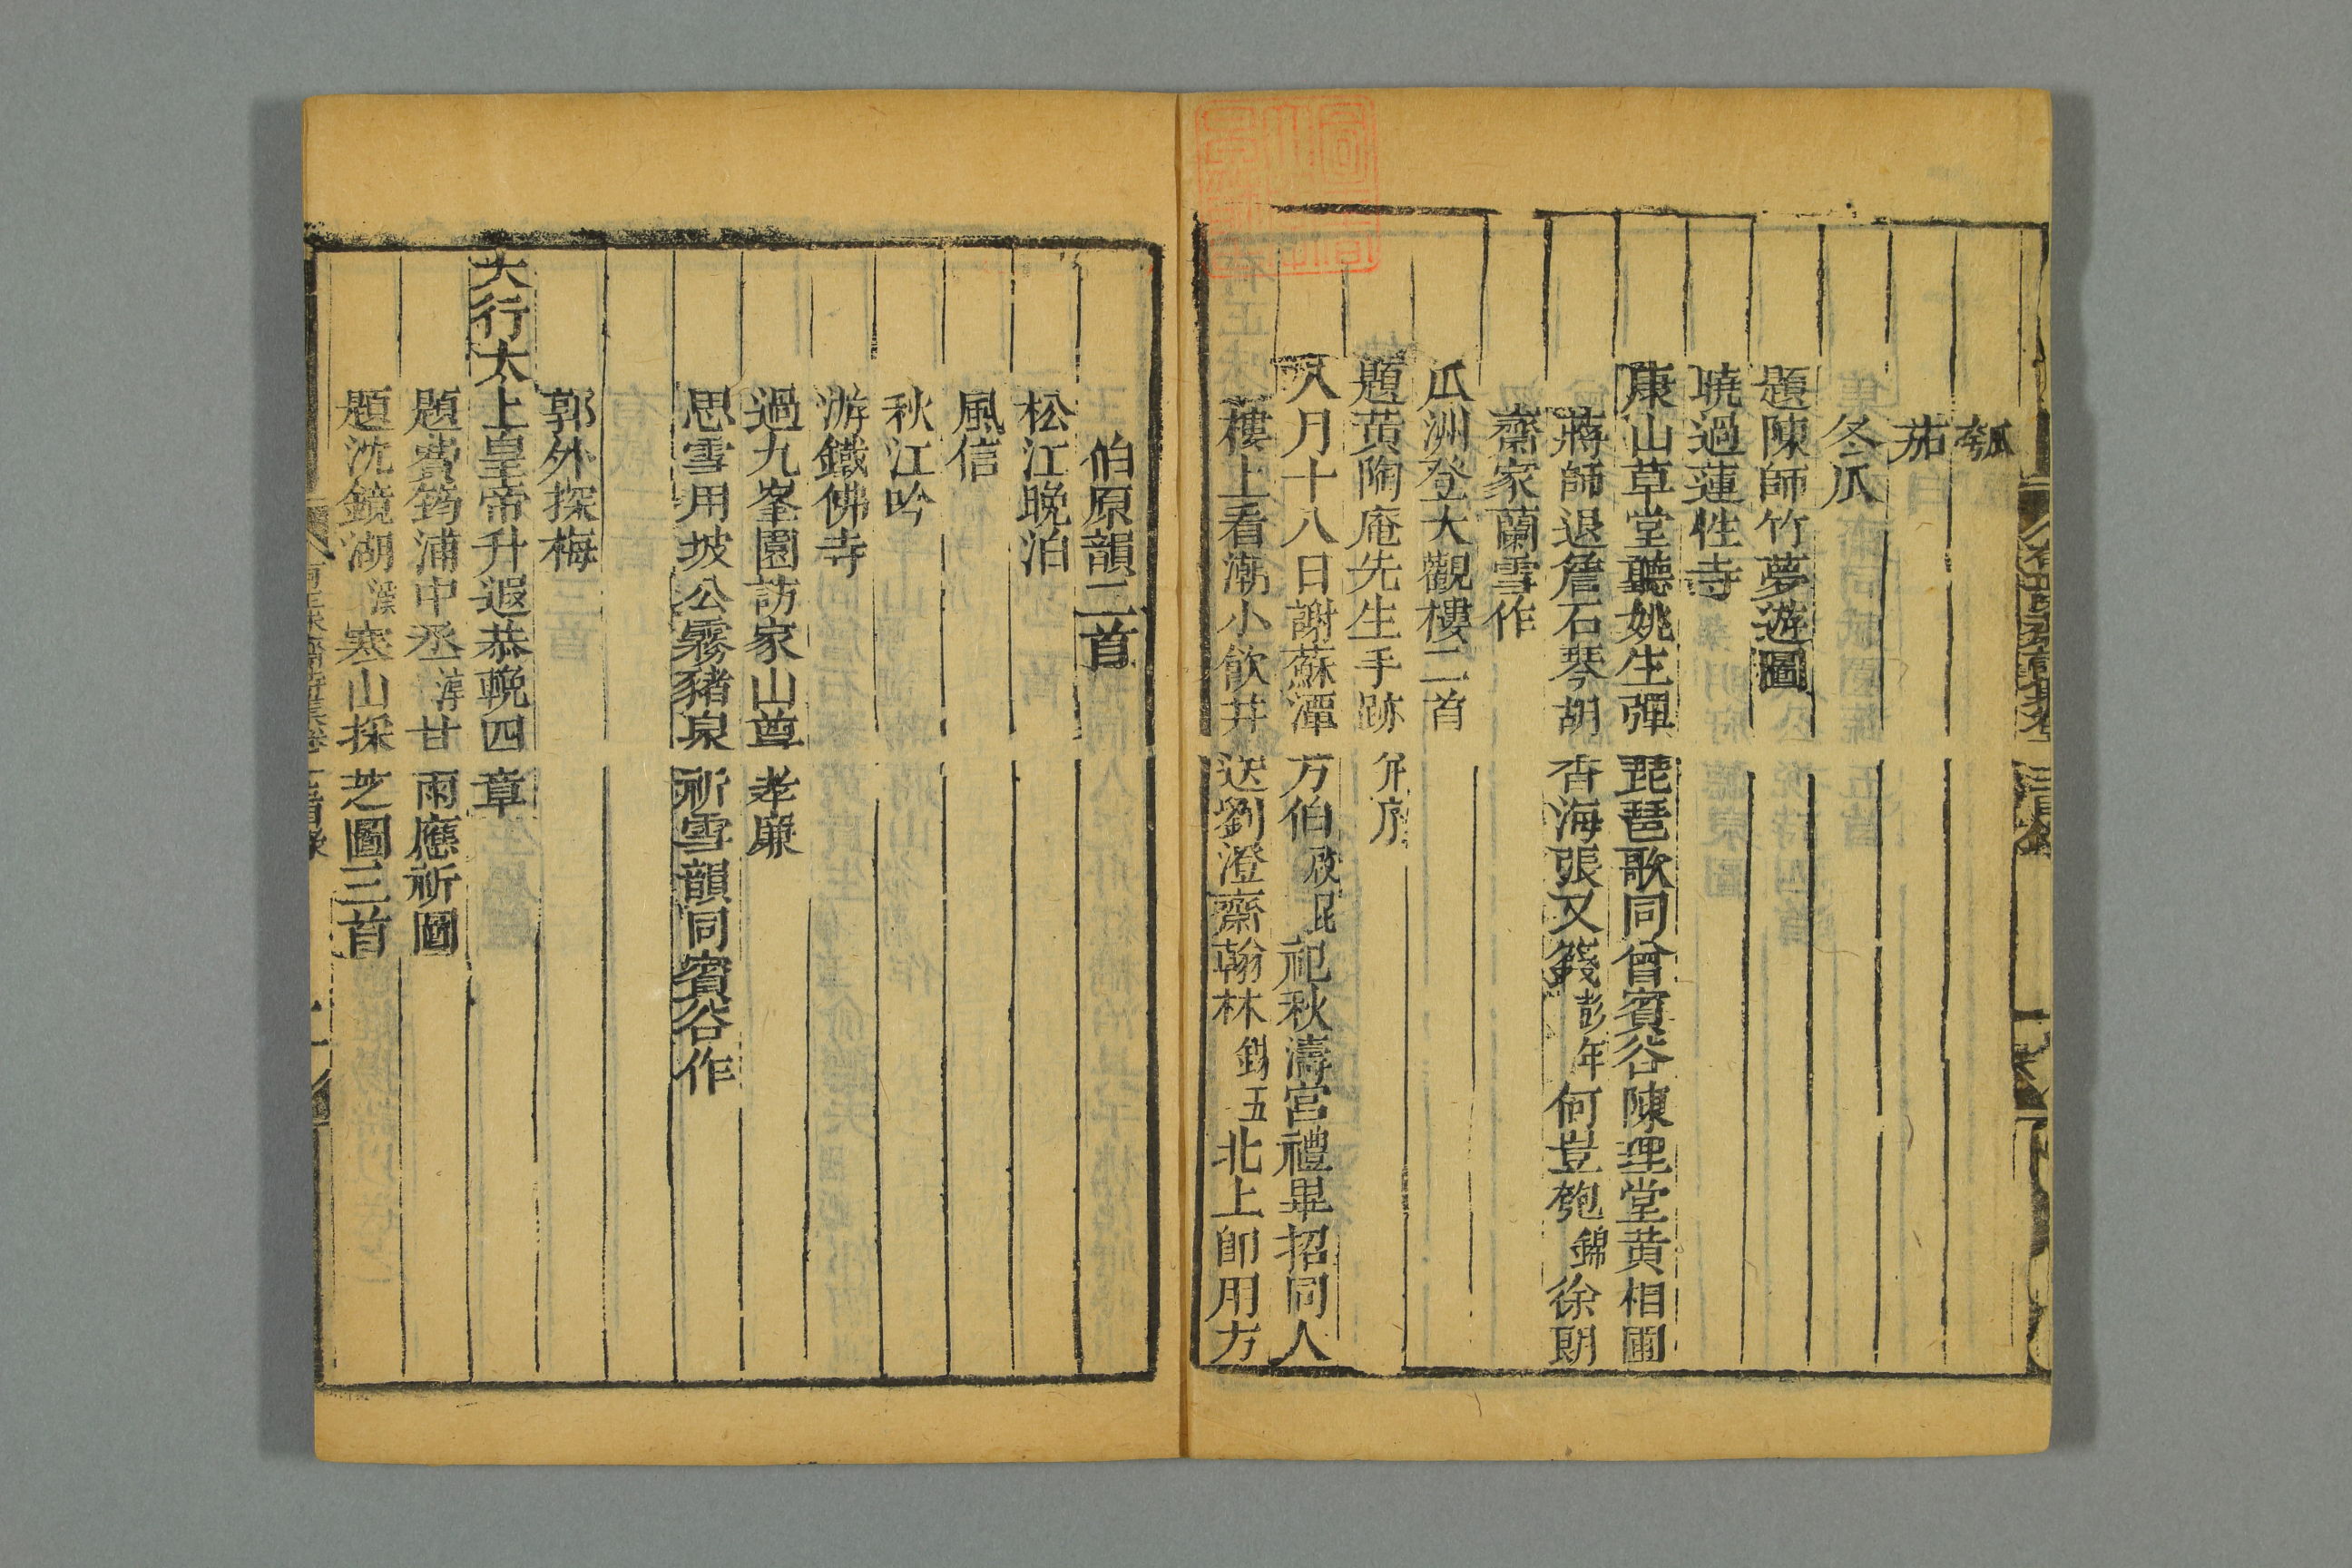 瓠
茄
冬瓜
題陳師竹夢遊圖
曉過蓮性寺
康山草堂聽姚生彈琵琶歌同曾賓谷陳理堂黃相圃
蔣師退詹石琴胡香海張又篯彭年何豈匏錦徐閬
齋家蘭雪作
瓜洲登大觀樓二首
題黃陶庵先生手跡并序
八月十八日謝蘇潭方伯啟昆祀秋濤宮禮畢招同人
樓上看潮小飲并送劉澄齋翰林錫五北上卽用方
伯原韻二首
松江晚泊
風信
秋江吟
游鐵佛寺
過九峯園訪家山尊孝廉
思雪用坡公霧豬泉祈雪韻同賓谷作
郭外探梅
大行太上皇帝升遐恭輓四章
題費筠浦中丞淳甘雨應祈圖
題沈鏡湖寒山採芝圖三首